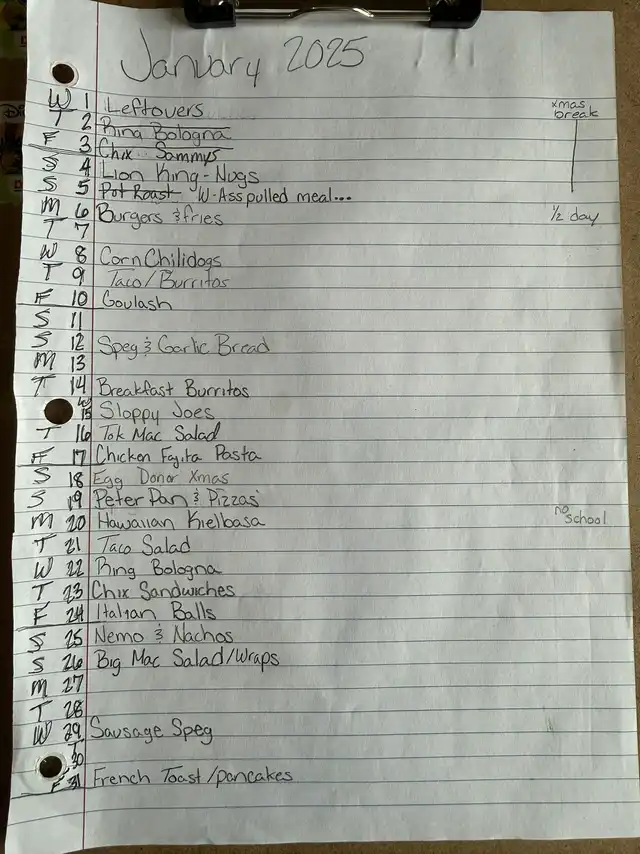 January 2025
W 1 Leftovers xmas
break
T 2 Ring Bologna
F 3 Chix Sammys
S 4 Lion King - Nugs
S 5 Pot Roast W-Ass pulled meal...
M 6 Burgers & fries ½ day
T 7
W 8 Corn Chilidogs
T 9 Taco/Burritos
F 10 Goulash
S 11
S 12 Speg & Garlic Bread
M 13
T 14 Breakfast Burritos
W 15 Sloppy Joes
T 16 Tok Mac Salad
F 17 Chicken Fajita Pasta
S 18 Egg Donor Xmas
S 19 Peter Pan & Pizzas
M 20 Hawaiian Kielbasa no school
T 21 Taco Salad
W 22 Ring Bologna
T 23 Chix Sandwiches
F 24 Italian Balls
S 25 Nemo & Nachos
S 26 Big Mac Salad/Wraps
M 27
T 28
W 29 Sausage Speg
T 30
F 31 French Toast/pancakes